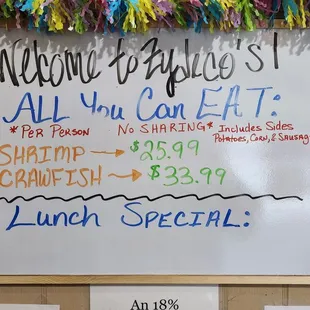 Welcome to Zydeco's!
ALL You Can EAT:
*PER PERSON NO SHARING* Includes Sides
POTATOES, CORN, & SAUSAG
SHRIMP → $25.99
CRAWFISH → $33.99
LUNCH SPECIAL:
An 18%